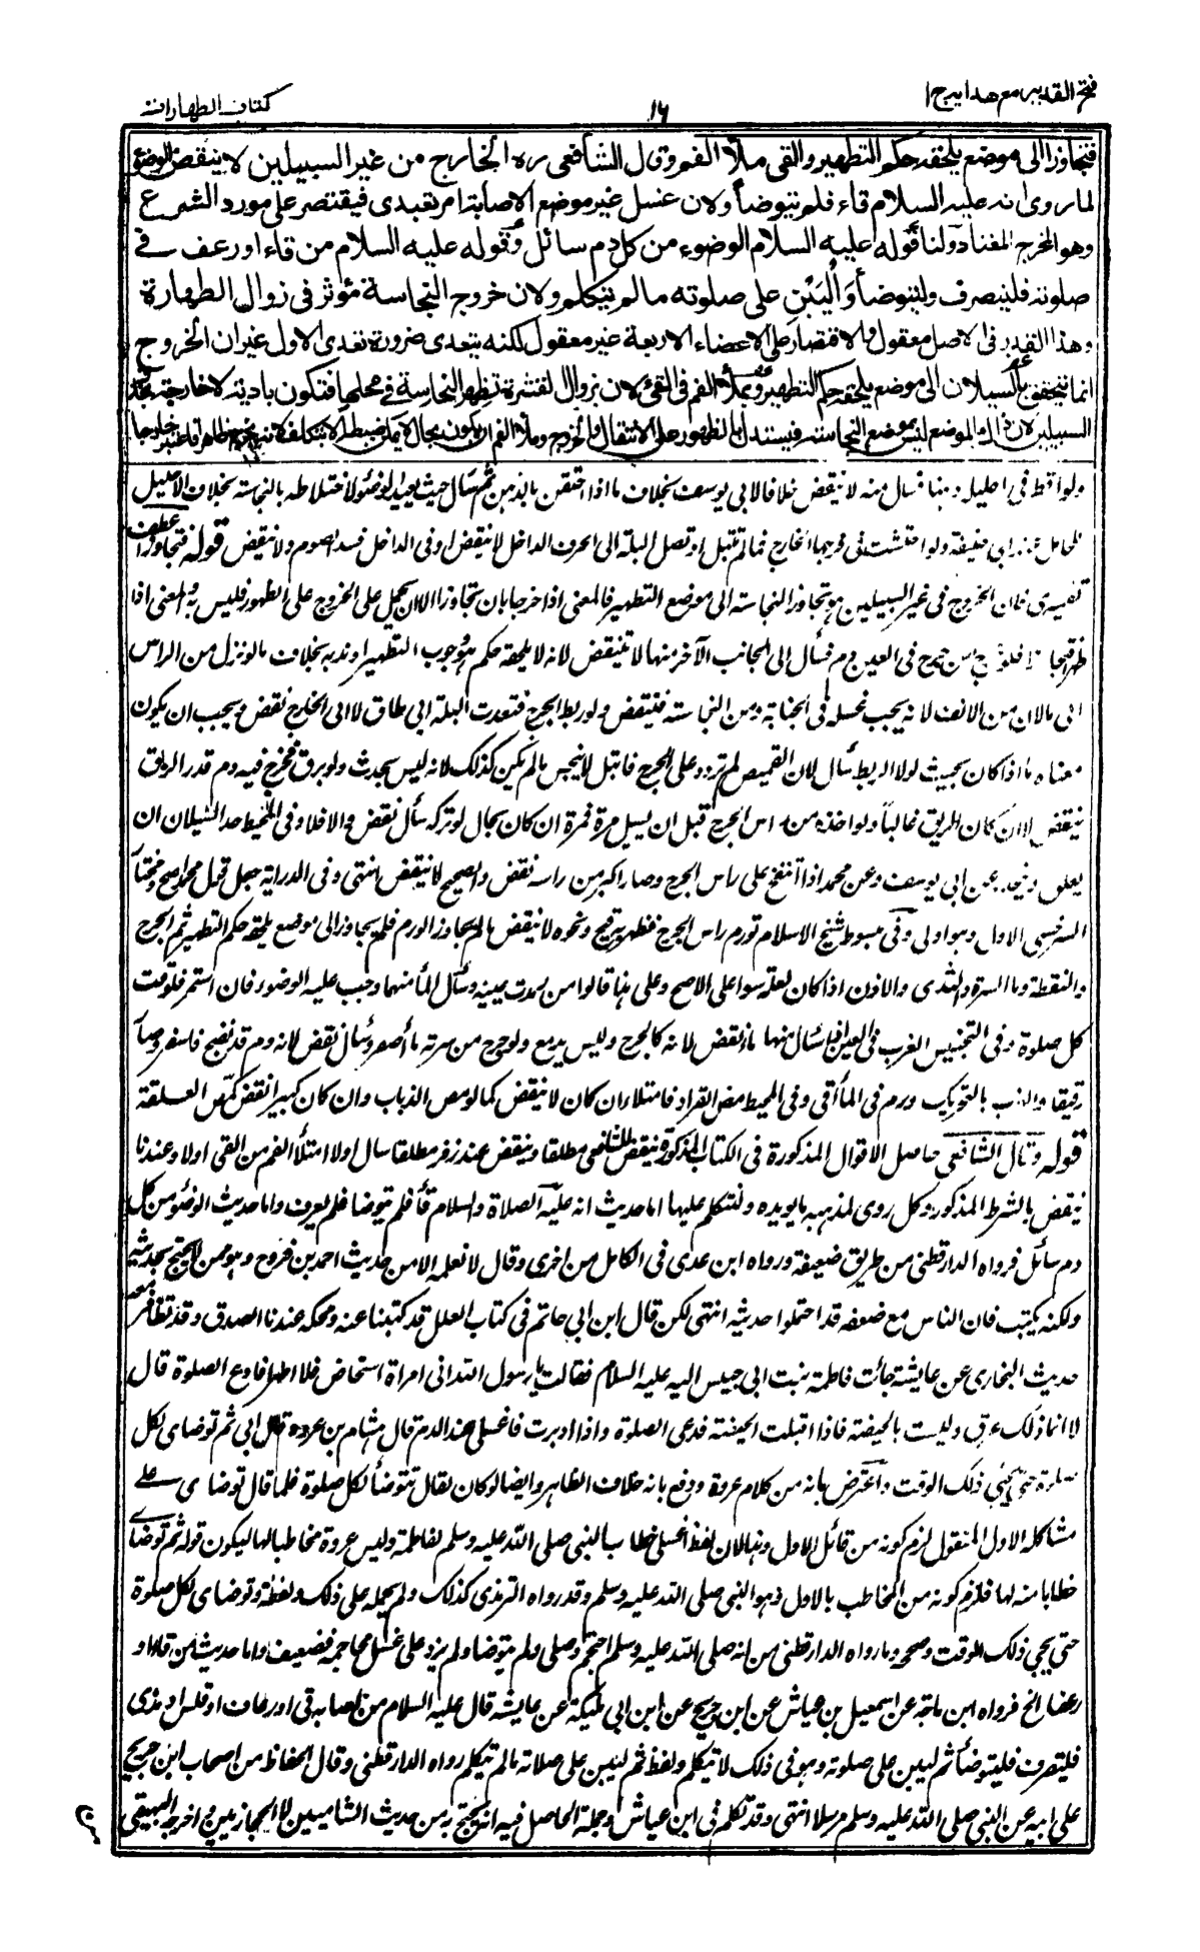 فتح القدير مع هدايه ج ١
١٦
كتاب الطهارات
فتجاوزا الى موضع يلحقه حكم التطهير والقى ملأ الفم وقال الشافعى ره الخارج من غير السبيلين لا ينقض الوضوء
لما روى انه عليه السلام قاء فلم يتوضأ ولان غسل غير موضع الاصابة امر تعبدى فيقتصر على مورد الشرع
وهو المخرج المعتاد ولنا قوله عليه السلام الوضوء من كل دم سائل وقوله عليه السلام من قاء او رعف فى
صلوته فلينصرف وليتوضأ وَلْيَبْنِ على صلوته ما لم يتكلم ولان خروج النجاسة مؤثر فى زوال الطهارة
وهذا القدر فى الاصل معقول والاقتصار على الاعضاء الاربعة غير معقول لكنه يتعدى ضرورة تعدى الاول غير ان الخروج
انما يتحقق بالسيلان الى موضع يلحقه حكم التطهير وبملأ الفم فى القئ لان بزوال القشرة تظهر النجاسة فى محلها فتكون بادية لا خارجة بخلاف
السبيلين لان ذلك الموضع ليس موضع النجاسة فيستدل بالظهور على الانتقال والخروج وملأ الفم ان يكون بحال لا يمكن ضبطه الا بتكلف لانه يخرج ظاهرا فاعتبر خارجا
ولو اقطر فى احليله دهنا فسال منه لا ينقض خلافا لابى يوسف بخلاف ما اذا احتقن بالدهن ثم سال حيث يعيد الوضوء لاختلاطه بالنجاسة بخلاف الاحليل
للحائل عند ابى حنيفة ولو احتشت فى فرجها الخارج فما لم تبتل او تصل البلة الى الحرف الداخل لا ينقض وفى الداخل فسد الصوم ولا ينقض قوله فتجاوزا عطف
تفسيرى فان الخروج فى غير السبيلين هو تجاوز النجاسة الى موضع التطهير فالمعنى اذا خرجا بان تجاوزا الا ان يحمل على الخروج على الظهور فليس به والمعنى اذا
ظهرا فتجاوزا فلو خرج من جرح فى العين دم فسال الى الجانب الآخر منها لا ينقض لانه لا يلحقه حكم هو وجوب التطهير او ندبه بخلاف ما لو نزل من الراس
الى ما لان من الانف لانه يجب غسله فى الجنابة ومن النجاسة فينقض ولو ربط الجرح فنفذت البلة الى طاق لا الى الخارج نقض ويجب ان يكون
معناه ما اذا كان بحيث لولا الربط سال لان القميص لو تردد على الجرح فابتل لا ينجس ما لم يكن كذلك لانه ليس بحدث ولو بزق فخرج فيه دم قدر الريق
ينقض الا ان كان الريق غالبا ولو اخذه من راس الجرح قبل ان يسيل مرة فمرة ان كان بحال لو تركه سال نقض والا فلا وفى المحيط حد السيلان ان
يعلو وينحدر عن ابى يوسف وعن محمد اذا انتفخ على راس الجرح وصار اكبر من راسه نقض والصحيح لا ينقض انتهى وفى الدراية جعل قول محمد اصح ومختار
السرخسى الاول وهو اولى وفى مبسوط شيخ الاسلام تورم راس الجرح فظهر به قيح ونحوه لا ينقض ما لم يجاوز الورم فلم يجاوز الى موضع يلحقه حكم التطهير ثم الجرح
والنفطة وماء السرة والثدى والاذن اذا كان لعلة سواء على الاصح وعلى هذا قالوا من رمدت عينه وسال الماء منها وجب عليه الوضوء فان استمر فلوقت
كل صلوة وفى التجنيس الغرب فى العين اذا سال منها ماء نقض لانه كالجرح وليس بدمع ولو خرج من سرته ماء اصفر وسال نقض لانه دم قد نضج فاصفر وصار
رقيقا والغرب بالتحريك ورم فى المأقى وفى المحيط مص القراد فامتلأ ان كان لا ينقض كما لو مص الذباب وان كان كبيرا نقض كمص العلقة
قوله وقال الشافعى حاصل الاقوال المذكورة فى الكتاب المذكورة ينقض للشافعى مطلقا وينقض عند زفر مطلقا سال اولا امتلأ الفم من القى اولا وعندنا
ينقض بالشرط المذكور وكل روى لمذهبه ما يؤيده ونتكلم عليها اما حديث انه عليه الصلاة والسلام قاء فلم يتوضا فلم يعرف واما حديث الوضوء من كل
دم سائل فرواه الدارقطنى من طريق ضعيفة ورواه ابن عدى فى الكامل من اخرى وقال لا نعلمه الا من حديث احمد بن فروح وهو ممن لا يحتج بحديثه
ولكنه يكتب فان الناس مع ضعفه قد احتملوا حديثه انتهى لكن قال ابن ابى حاتم فى كتاب العلل قد كتبنا عنه ومحله عندنا الصدق وقد تظافر معه
حديث البخارى عن عايشة جائت فاطمة بنت ابى حبيش اليه عليه السلام فقالت يا رسول الله انى امراة استحاض فلا اطهر افادع الصلوة قال
لا انما ذلك عرق وليست بالحيضة فاذا اقبلت الحيضة فدعى الصلوة واذا ادبرت فاغسلى عنك الدم قال هشام بن عروة قال ابى ثم توضاى لكل
صلوة حتى يجئ ذلك الوقت واعترض بانه من كلام عروة ودفع بانه خلاف الظاهر وايضا لو كان لقال تتوضأ لكل صلوة فلما قال توضاى على
مشاكله الاول المنقول لزم كونه من قائل الاول وهذا لان لفظ اغسلى خطاب النبى صلى الله عليه وسلم لفاطمة وليس عروة مخاطبا لها ليكون قوله ثم توضاى
خطابا منه لها فلزم كونه من المخاطب بالاول وهو النبى صلى الله عليه وسلم وقد رواه الترمذى كذلك ولم يحمله على ذلك ولفظه وتوضاى لكل صلوة
حتى يجئ ذلك الوقت وصححه وما رواه الدارقطنى من انه صلى الله عليه وسلم احتجم وصلى ولم يتوضا ولم يزد على غسل محاجمه فضعيف واما حديث من قاء او
رعف الخ فرواه ابن ماجة عن اسمعيل بن عياش عن ابن جريج عن ابن ابى مليكة عن عايشة قال عليه السلام من اصابه قئ او رعاف او قلس او مذى
فلينصرف فليتوضأ ثم ليبن على صلوته وهو فى ذلك لا يتكلم ولفظ ثم ليبن على صلاته ما لم يتكلم رواه الدارقطنى وقال الحفاظ من اصحاب ابن جريج
على ابيه عن النبى صلى الله عليه وسلم مرسلا انتهى وقد تكلم فى ابن عياش وجملة الحاصل فيه انه يحتج به من حديث الشاميين لا الحجازيين واخرجه البيهقى